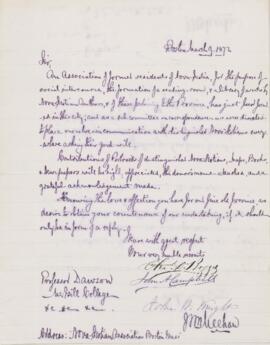 Boston March 9, 1872
Sir,
An Association of former residents of Nova Scotia, for the purpose of
social intercourse, the formation of a reading room, & Library of works by
Nova Scotian Authors, & of those relating to the Province, has just been formed
in this city; and as a sub committee on correspondence we are directed
to place ourselves in communication with distinguished Nova Scotians every
where asking their good will.
Contributions of Pictures of distinguished Nova Scotians, Maps, Books,
& Newspapers will be highly appreciated, the donors names and a
grateful acknowledgement made.
Knowing the love & affection you have for our fine old province we
desire to obtain your countenance of our undertaking, if it should
only be in form of a reply.
I have with great respect
Your very humble servants
John A Campbell
John D. Knight
J R McMeehan
Professor Dawson
McGill College
&c &c &c
Address: Nova Scotian Association Boston Mass